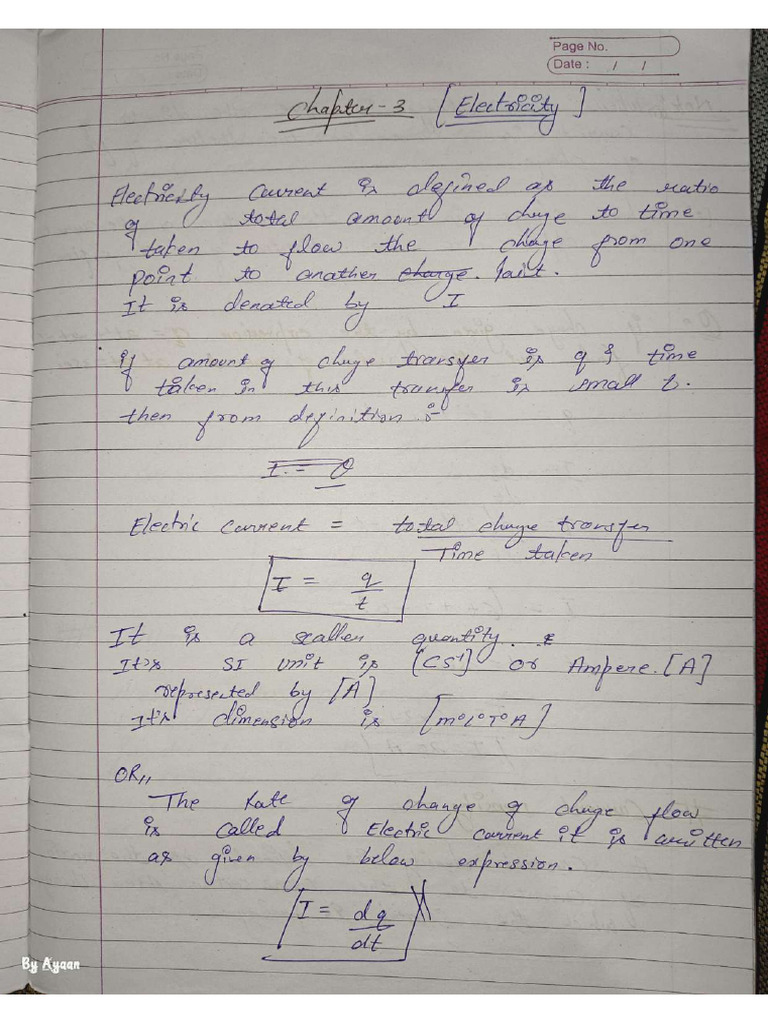 Page No.
Date : / /
Chapter-3 [Electricity]
Electricity Current is defined as the ratio
of total amount of charge to time
taken to flow the charge from one
point to another charge. Point.
It is denated by I
if amount of charge transfer is q & time
taken in this transfer is small t.
then from definition :-
I = Q
Electric Current = total charge transfer
Time taken
I = q
t
It is a scaller quantity.
It's SI unit is [CS⁻¹] or Ampere. [A]
represented by [A]
It's dimension is [M⁰L⁰T⁰A]
OR,,
The Rate of change of charge flow
is called Electric current it is written
as given by below expression.
I = dq
dt
By Ayaan